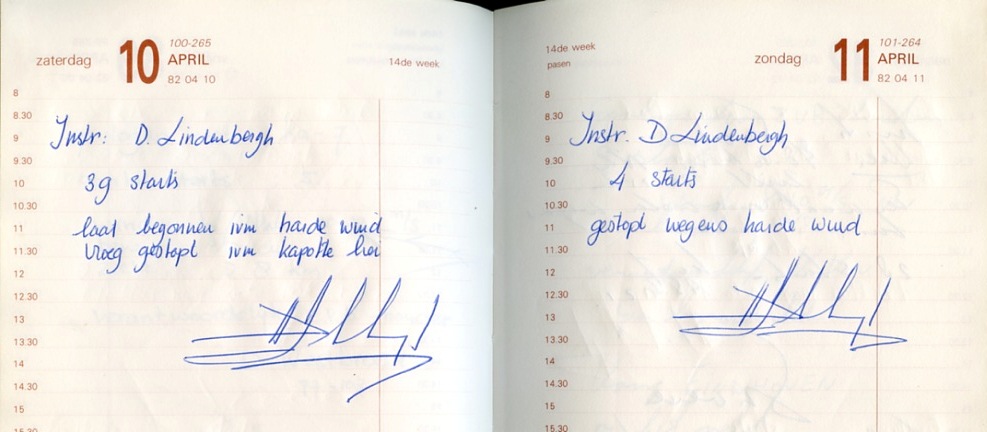 zaterdag 10 100-265 APRIL 82 04 10 14de week
8
8.30
Instr: D. Lindenbergh
9
9.30
39 starts
10
10.30
laat begonnen ivm harde wind
11
vroeg gestopt ivm kapotte lier
11.30
12
12.30
13
13.30
14
14.30
15
15.30
14de week
pasen
zondag 11 101-264 APRIL 82 04 11
8
8.30
Instr. D Lindenbergh
9
9.30
4 starts
10
10.30
gestopt wegens harde wind
11
11.30
12
12.30
13
13.30
14
14.30
15
15.30